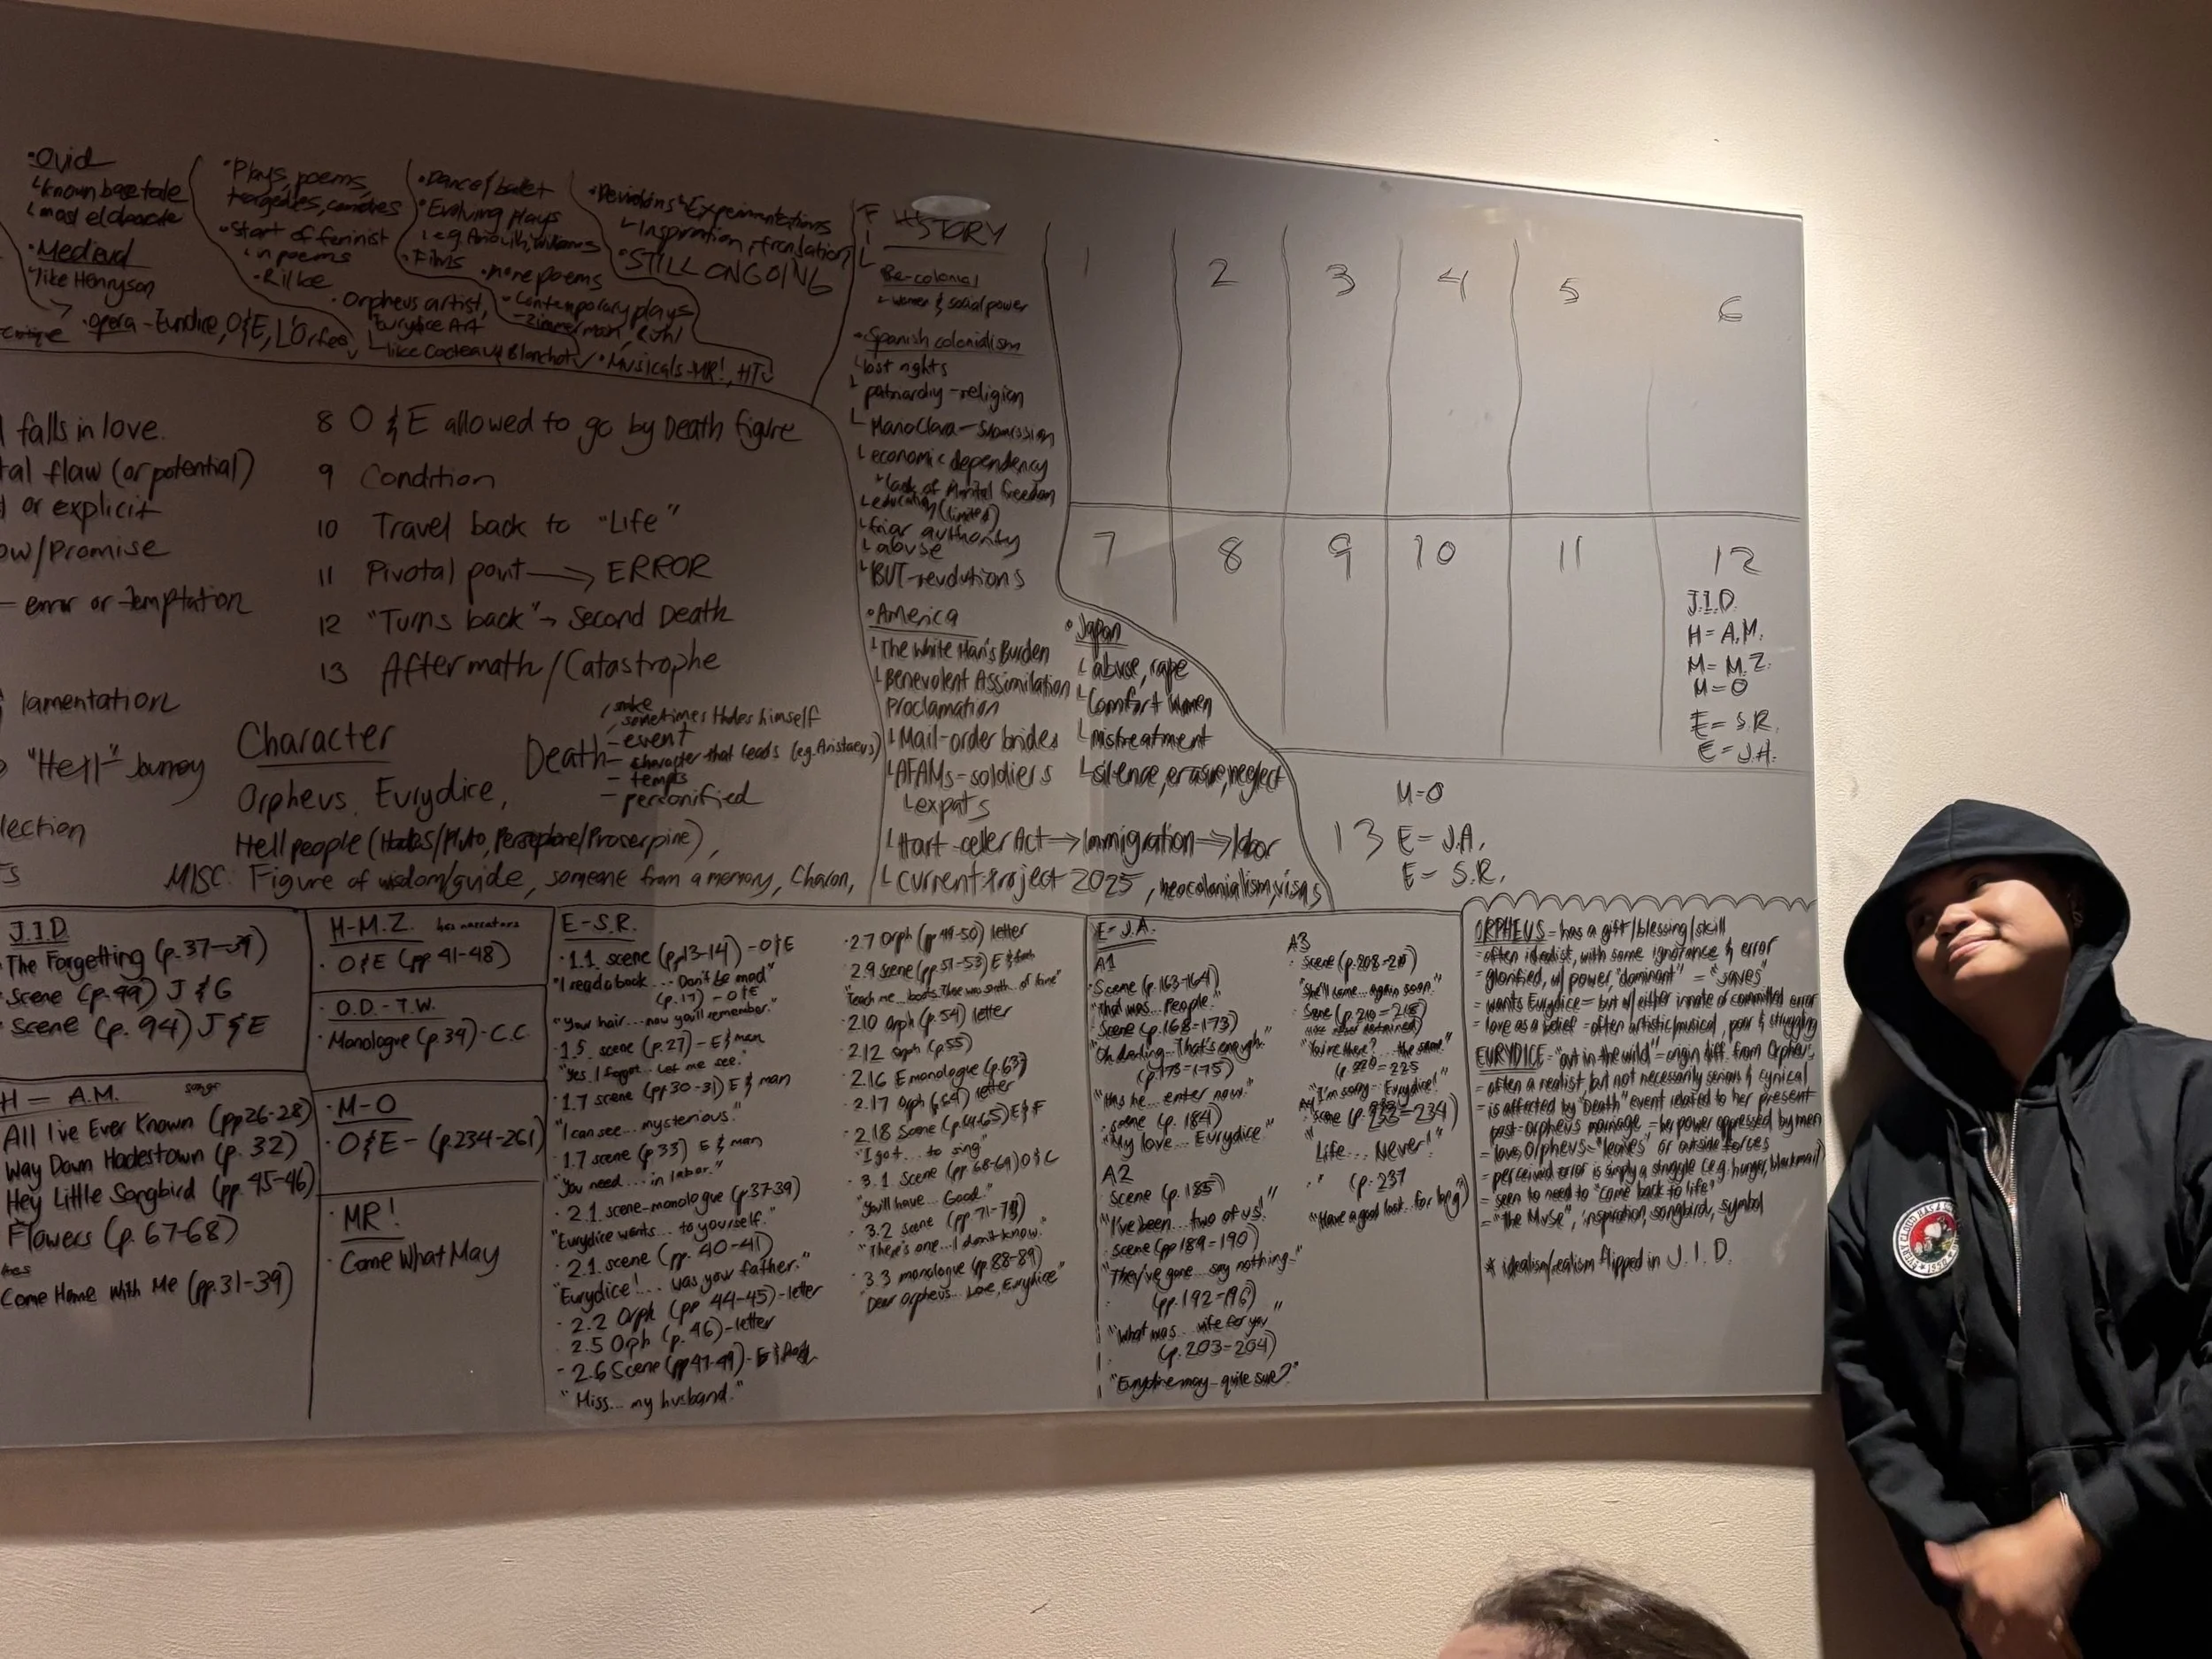 ·Ovid
known base tale
most elaborate
·Medieval
like Henryson
·Opera - Euridice, O&E, L'Orfeo
·Plays, poems,
tragedies, comedies
·Start of feminist
in poems
·Rilke
·Orpheus artist,
Eurydice Art
like Cocteau & Blanchot
·Dance/ballet
·Evolving plays
·Films
·more poems
·Contemporary plays
-Zimmerman, Ruhl
·Musicals-MR!, HT
·Deviations & Experimentations
Inspiration, translation
·STILL ONGOING
falls in love.
tal flaw (or potential)
or explicit
ow/Promise
- error or temptation
lamentation
"Hell" Journey
lection
8 O & E allowed to go by Death figure
9 Condition
10 Travel back to "Life"
11 Pivotal point → ERROR
12 "Turns back" → Second Death
13 Aftermath/Catastrophe
Character
Orpheus, Eurydice,
Hell people (Hades/Pluto, Persephone/Proserpine),
MISC: Figure of wisdom/guide, someone from a memory, Charon,
Death
snake
sometimes Hades himself
- event
- character that leads (e.g. Aristaeus)
- tempts
- personified
FIL
HISTORY
Pre-colonial
women & social power
·Spanish colonialism
lost rights
patriarchy - religion
Maria Clara - Submission
economic dependency
lack of Marital freedom
education (limited)
friar authority
abuse
BUT - revolutions
·America
The White Man's Burden
Benevolent Assimilation
Proclamation
Mail-order brides
AFAMs = soldiers
expats
Hart-celler Act → Immigration ⇒ labor
Current Project 2025, neocolonialism, visas
·Japan
abuse, rape
Comfort Women
mistreatment
silence, erasure, neglect
1 2 3 4 5 6
7 8 9 10 11 12
J.I.D.
H = A.M.
M = M.Z.
M = O
E = S.R.
E = J.A.
13
M = O
E = J.A.
E = S.R.
J.I.D.
·The Forgetting (p. 37-39)
·Scene (p. 99) J & G
·Scene (p. 94) J & E
H = A.M. songs
All I've Ever Known (pp 26-28)
Way Down Hadestown (p. 32)
Hey Little Songbird (pp. 45-46)
Flowers (p. 67-68)
Come Home With Me (pp. 31-39)
M-M.Z. has narrators
·O&E (pp 41-48)
O.D. - T.W.
·Monologue (p. 39) - C.C.
·M-O
·O&E - (p. 234-261)
·MR!
·Come What May
E-S.R.
·1.1 scene (pp 13-14) - O&E
"I read a book... Don't be mad"
(p. 17) - O&E
"Your hair... now you'll remember."
·1.5 scene (p. 27) - E & man
"Yes. I forgot... Let me see."
·1.7 scene (pp 30-31) E & man
"I can see... mysterious."
1.7 scene (p. 33) E & man
"You need... in labor."
·2.1 scene-monologue (p. 37-39)
"Eurydice wants... to yourself."
·2.1 scene (pp. 40-41)
"Eurydice!... was your father."
·2.2 Orph (pp 44-45) - letter
·2.5 Orph (p. 46) - letter
-2.6 Scene (pp 47-49) -
"Miss... my husband."
·2.7 Orph (pp 49-50) letter
·2.9 scene (pp. 51-53)
·2.10 Orph (p. 54) letter
·2.12 Orph (p. 55)
·2.16 E monologue (p. 63)
·2.17 Orph (p. 64) letter
·2.18 Scene (p. 64-65) E & F
"I got... to sing"
·3.1 Scene (pp 68-69) O & C
"You'll have... Good."
·3.2 scene (pp. 71-73)
"There's one... I don't know."
·3.3 monologue (p. 88-89)
"Dear Orpheus... Love, Eurydice"
E-J.A.
A1
·Scene (p. 163-164)
"That was... People."
Scene (p. 168-173)
"Oh darling... That's enough."
(p. 173-175)
"Has he... enter now."
·scene (p. 184)
"My love... Eurydice."
A2
Scene (p. 185)
"I've been... two of us!"
·scene (pp 189-190)
"They've gone... say nothing."
(pp. 192-196)
"What was... wife for you"
(p. 203-204)
"Eurydice may... quite sure?"
A3
"She'll come... again soon."
"You're there?... the same"
(p. 220-225
"I'm sorry... Eurydice!"
A4
"Life... Never!"
(p. 237
ORPHEUS - has a gift/blessing/skill
- often idealist, with some ignorance & error
= glorified, w/ power "dominant" = "saves"
- wants Eurydice = but w/ either innate or committed error
= love as a belief = often artistic/musical, poor & struggling
EURYDICE - "out in the wild" = origin diff. from Orpheus
= often a realist but not necessarily serious & cynical
= is affected by "Death" event related to her present
post-Orpheus marriage = her power oppressed by men
= loves Orpheus = "leaves" or outside forces
= perceived error is simply a struggle (e.g. hunger, blackmail)
= seen to need to "come back to life"
= "the Muse", inspiration, songbird, symbol
* idealism/realism flipped in J.I.D.
EVERY CLOUD HAS A
1950